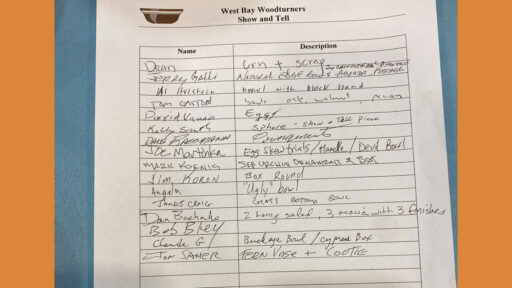 West Bay Woodturners
Show and Tell
Name Description
Dean Urn + scrap
Jerry Galli Natural Edge
Al Holstein Bowl with black band
Tom Gaston oak, walnut,
David Vannier Egg
Kelly Smith Sphere - show & tell piece
Dave Ornaments
Joe Martinka Egg Skew trials / Handle / Devil Bowl
Mark Koenig Sea Urchin Ornaments & Box
Jim Koren Box Round
Angelo "Ugly" bowl
James Craig Glass Bottom Bowl
Dan Boehmke 2 large salad, 3 acacia with 3 finishes
Bob Bley
Claude G Buckeye Bowl / Cypress Box
Jon Sauer Fern Vase + Cootie